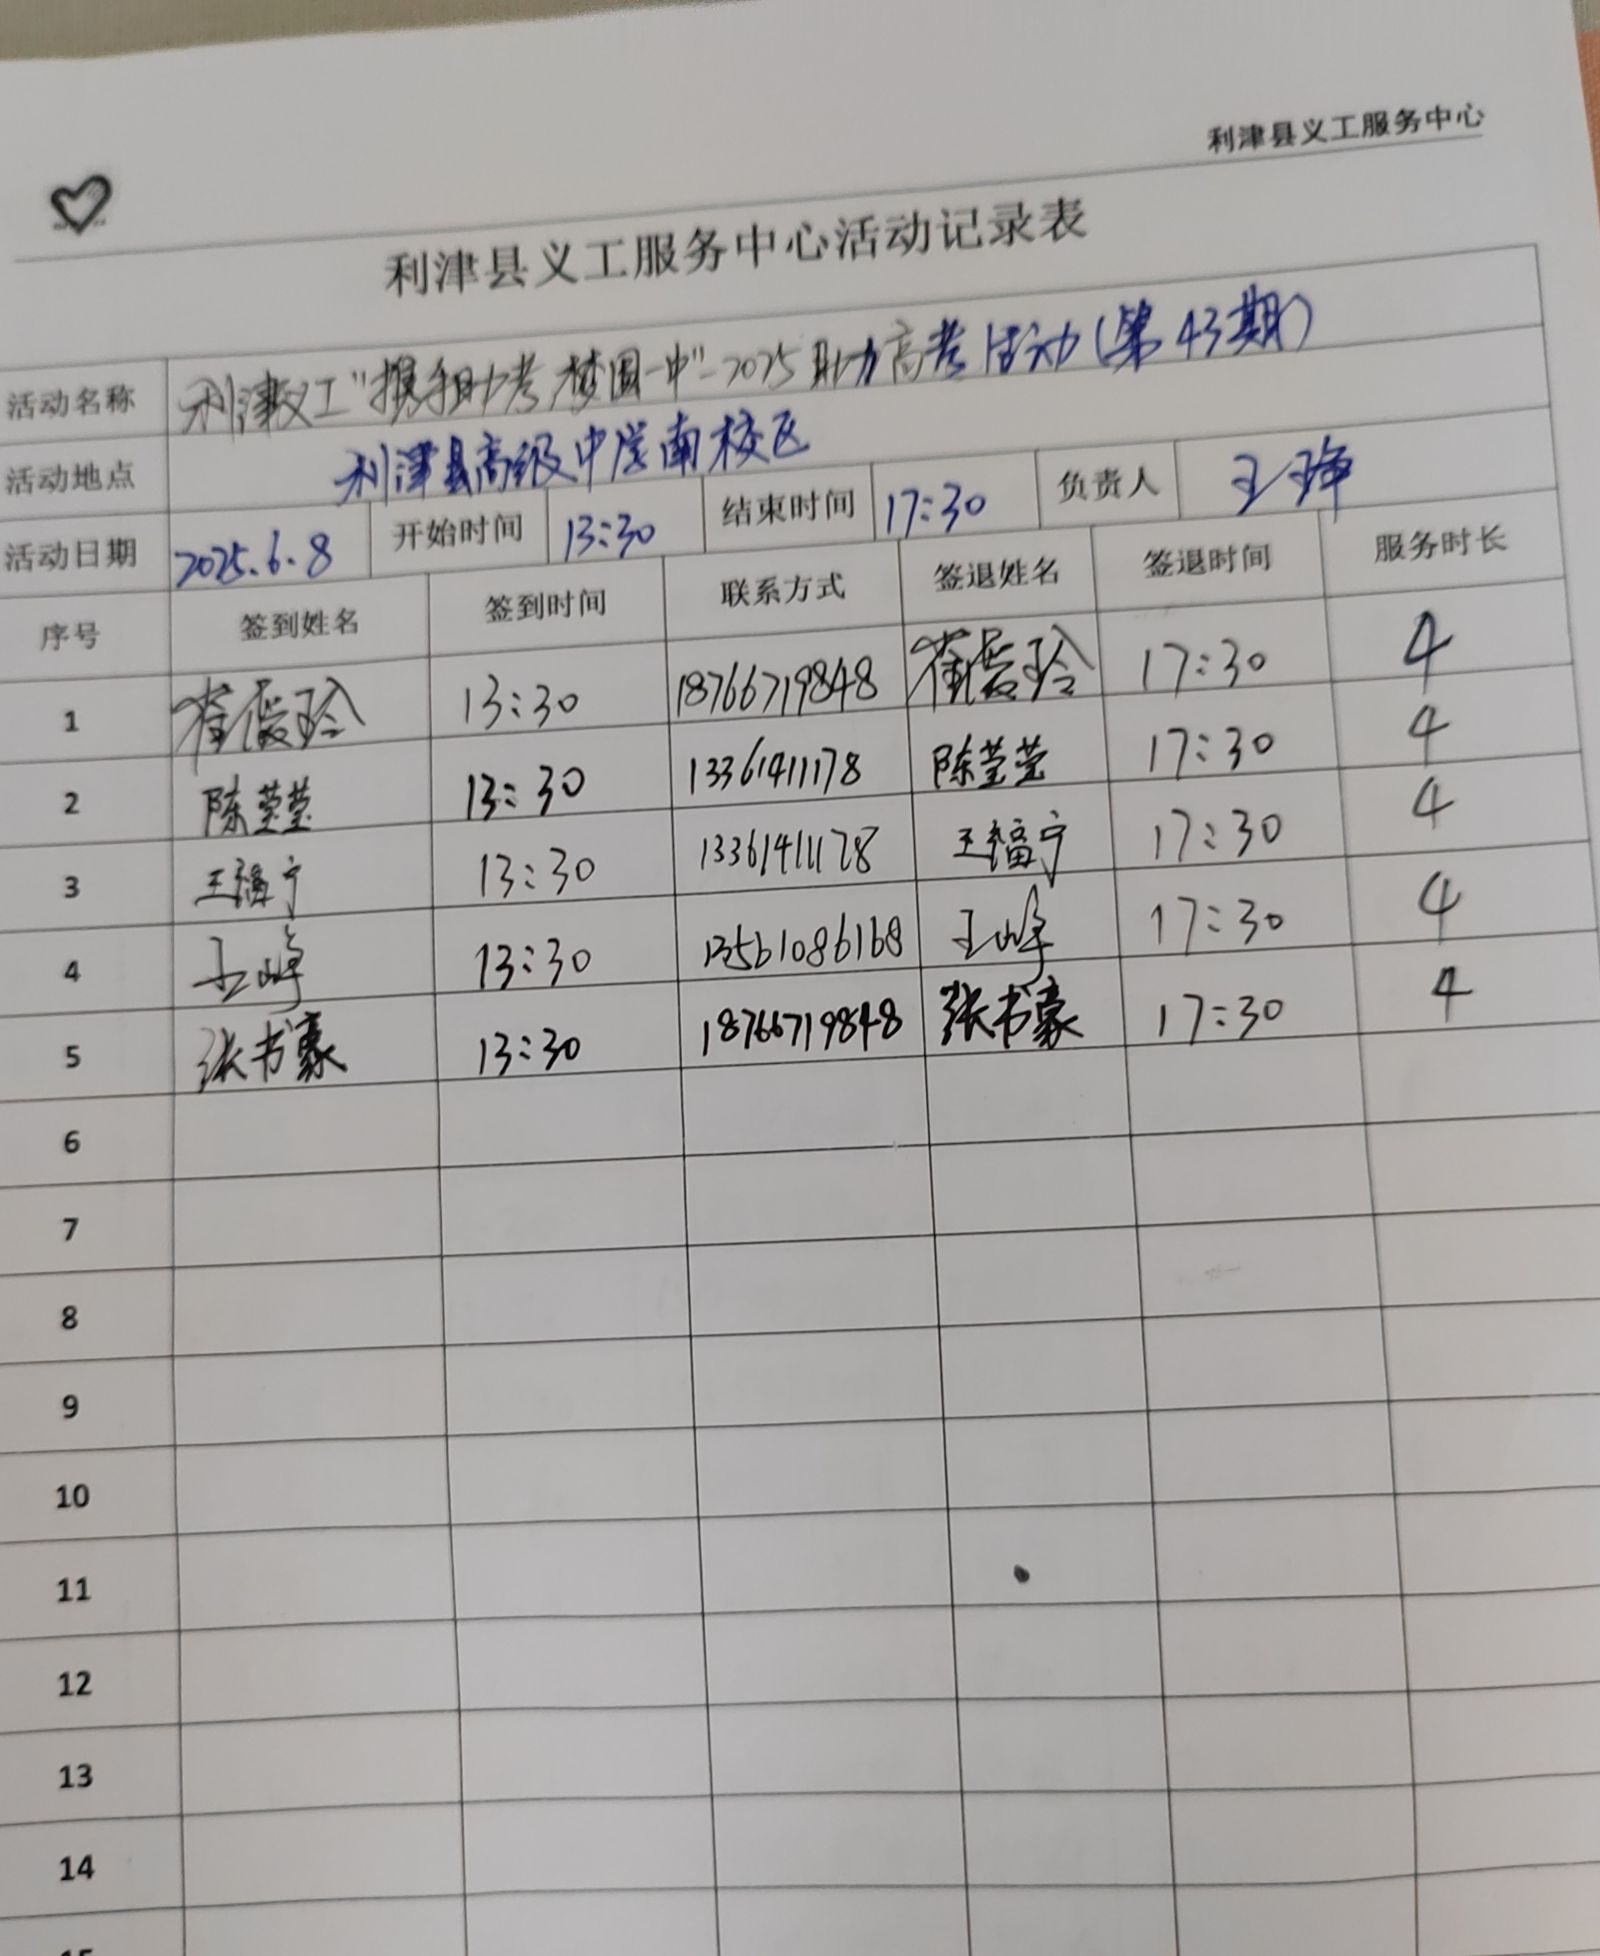 利津县义工服务中心
利津县义工服务中心活动记录表
活动名称 利津义工"携手助考 梦圆一中"-2025助力高考活动(第43期)
活动地点 利津县高级中学南校区
活动日期 2025.6.8 开始时间 13:30 结束时间 17:30 负责人 王琤
序号 签到姓名 签到时间 联系方式 签退姓名 签退时间 服务时长
1 崔爱玲 13:30 18766719848 崔爱玲 17:30 4
2 陈莹莹 13:30 13361411178 陈莹莹 17:30 4
3 王福宁 13:30 13361411178 王福宁 17:30 4
4 王峥 13:30 13561086168 王峥 17:30 4
5 张书豪 13:30 18766719848 张书豪 17:30 4
6
7
8
9
10
11
12
13
14
15